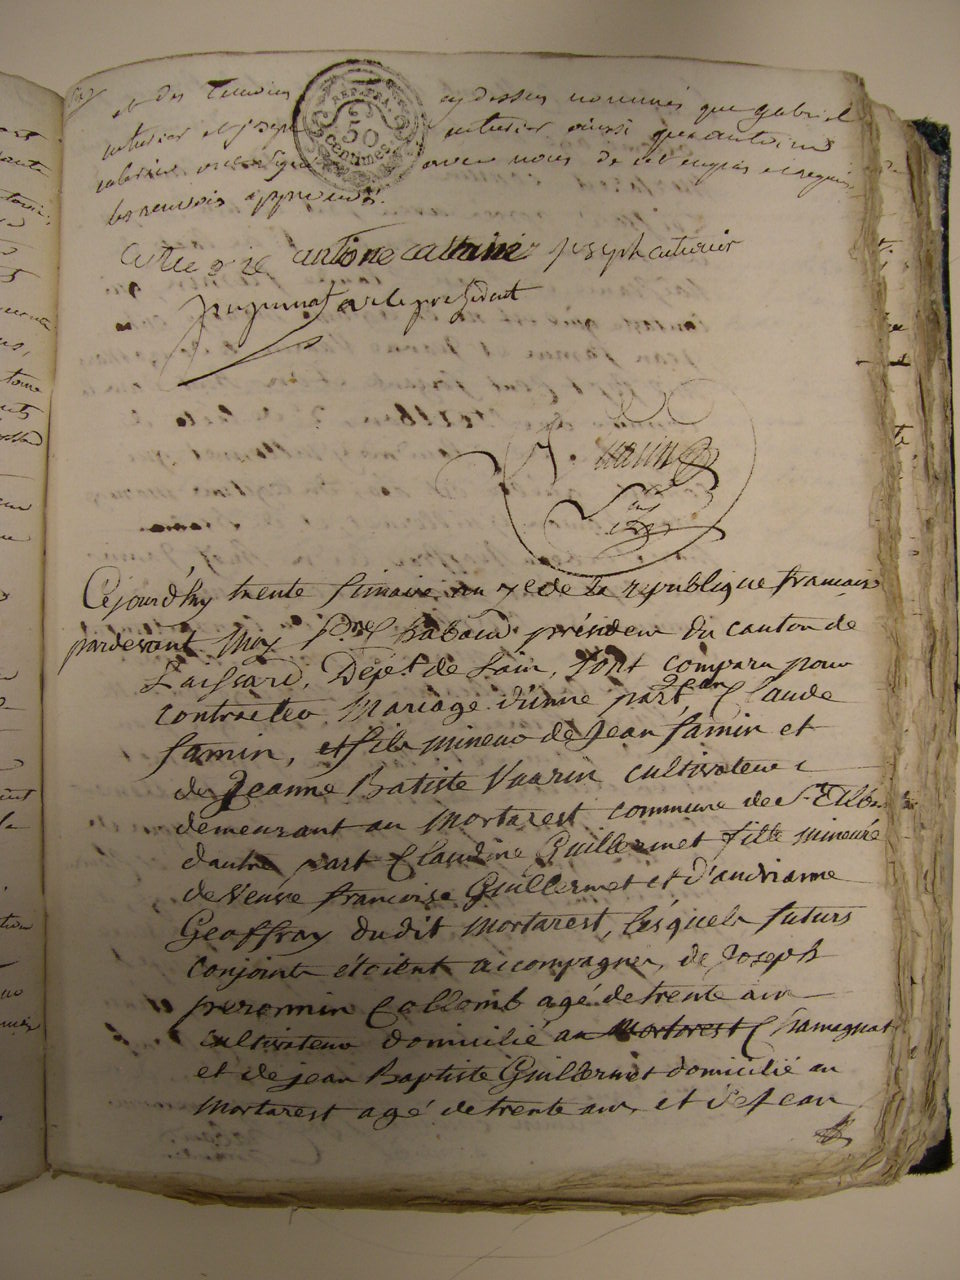 et des temoins cy dessus nommés que gabriel
cuturier et joseph cuturier ainsi que antoine
avec nous de ce enquis et requis
les renvois approuvés.
REP. FRA.
50
centimes
antoine joseph cuturier
président
Cejourd'huy trente frimaire an 7e de la republique francaise
pardevant Moy Rabaud président du canton de
Departt de Lain, sont comparu pour
contracter Mariage d'une part Claude
famin, et fils mineur de Jean famin et
de Jeanne Batiste Vuarin cultivateur
demeurant au Mortarest commune de St
d'autre part Claudine Guillermet fille mineure
de veuve francoise Guillermet et d'andrianne
Geoffray dudit Mortarest, lesquels futurs
conjoints étoient accompagner, de Joseph
Collomb agé de trente ans
cultivateur domicilié au Mortarest Chamagnat
et de jean Baptiste Guillermet domicilié au
Mortarest agé de trente ans, et de Jean